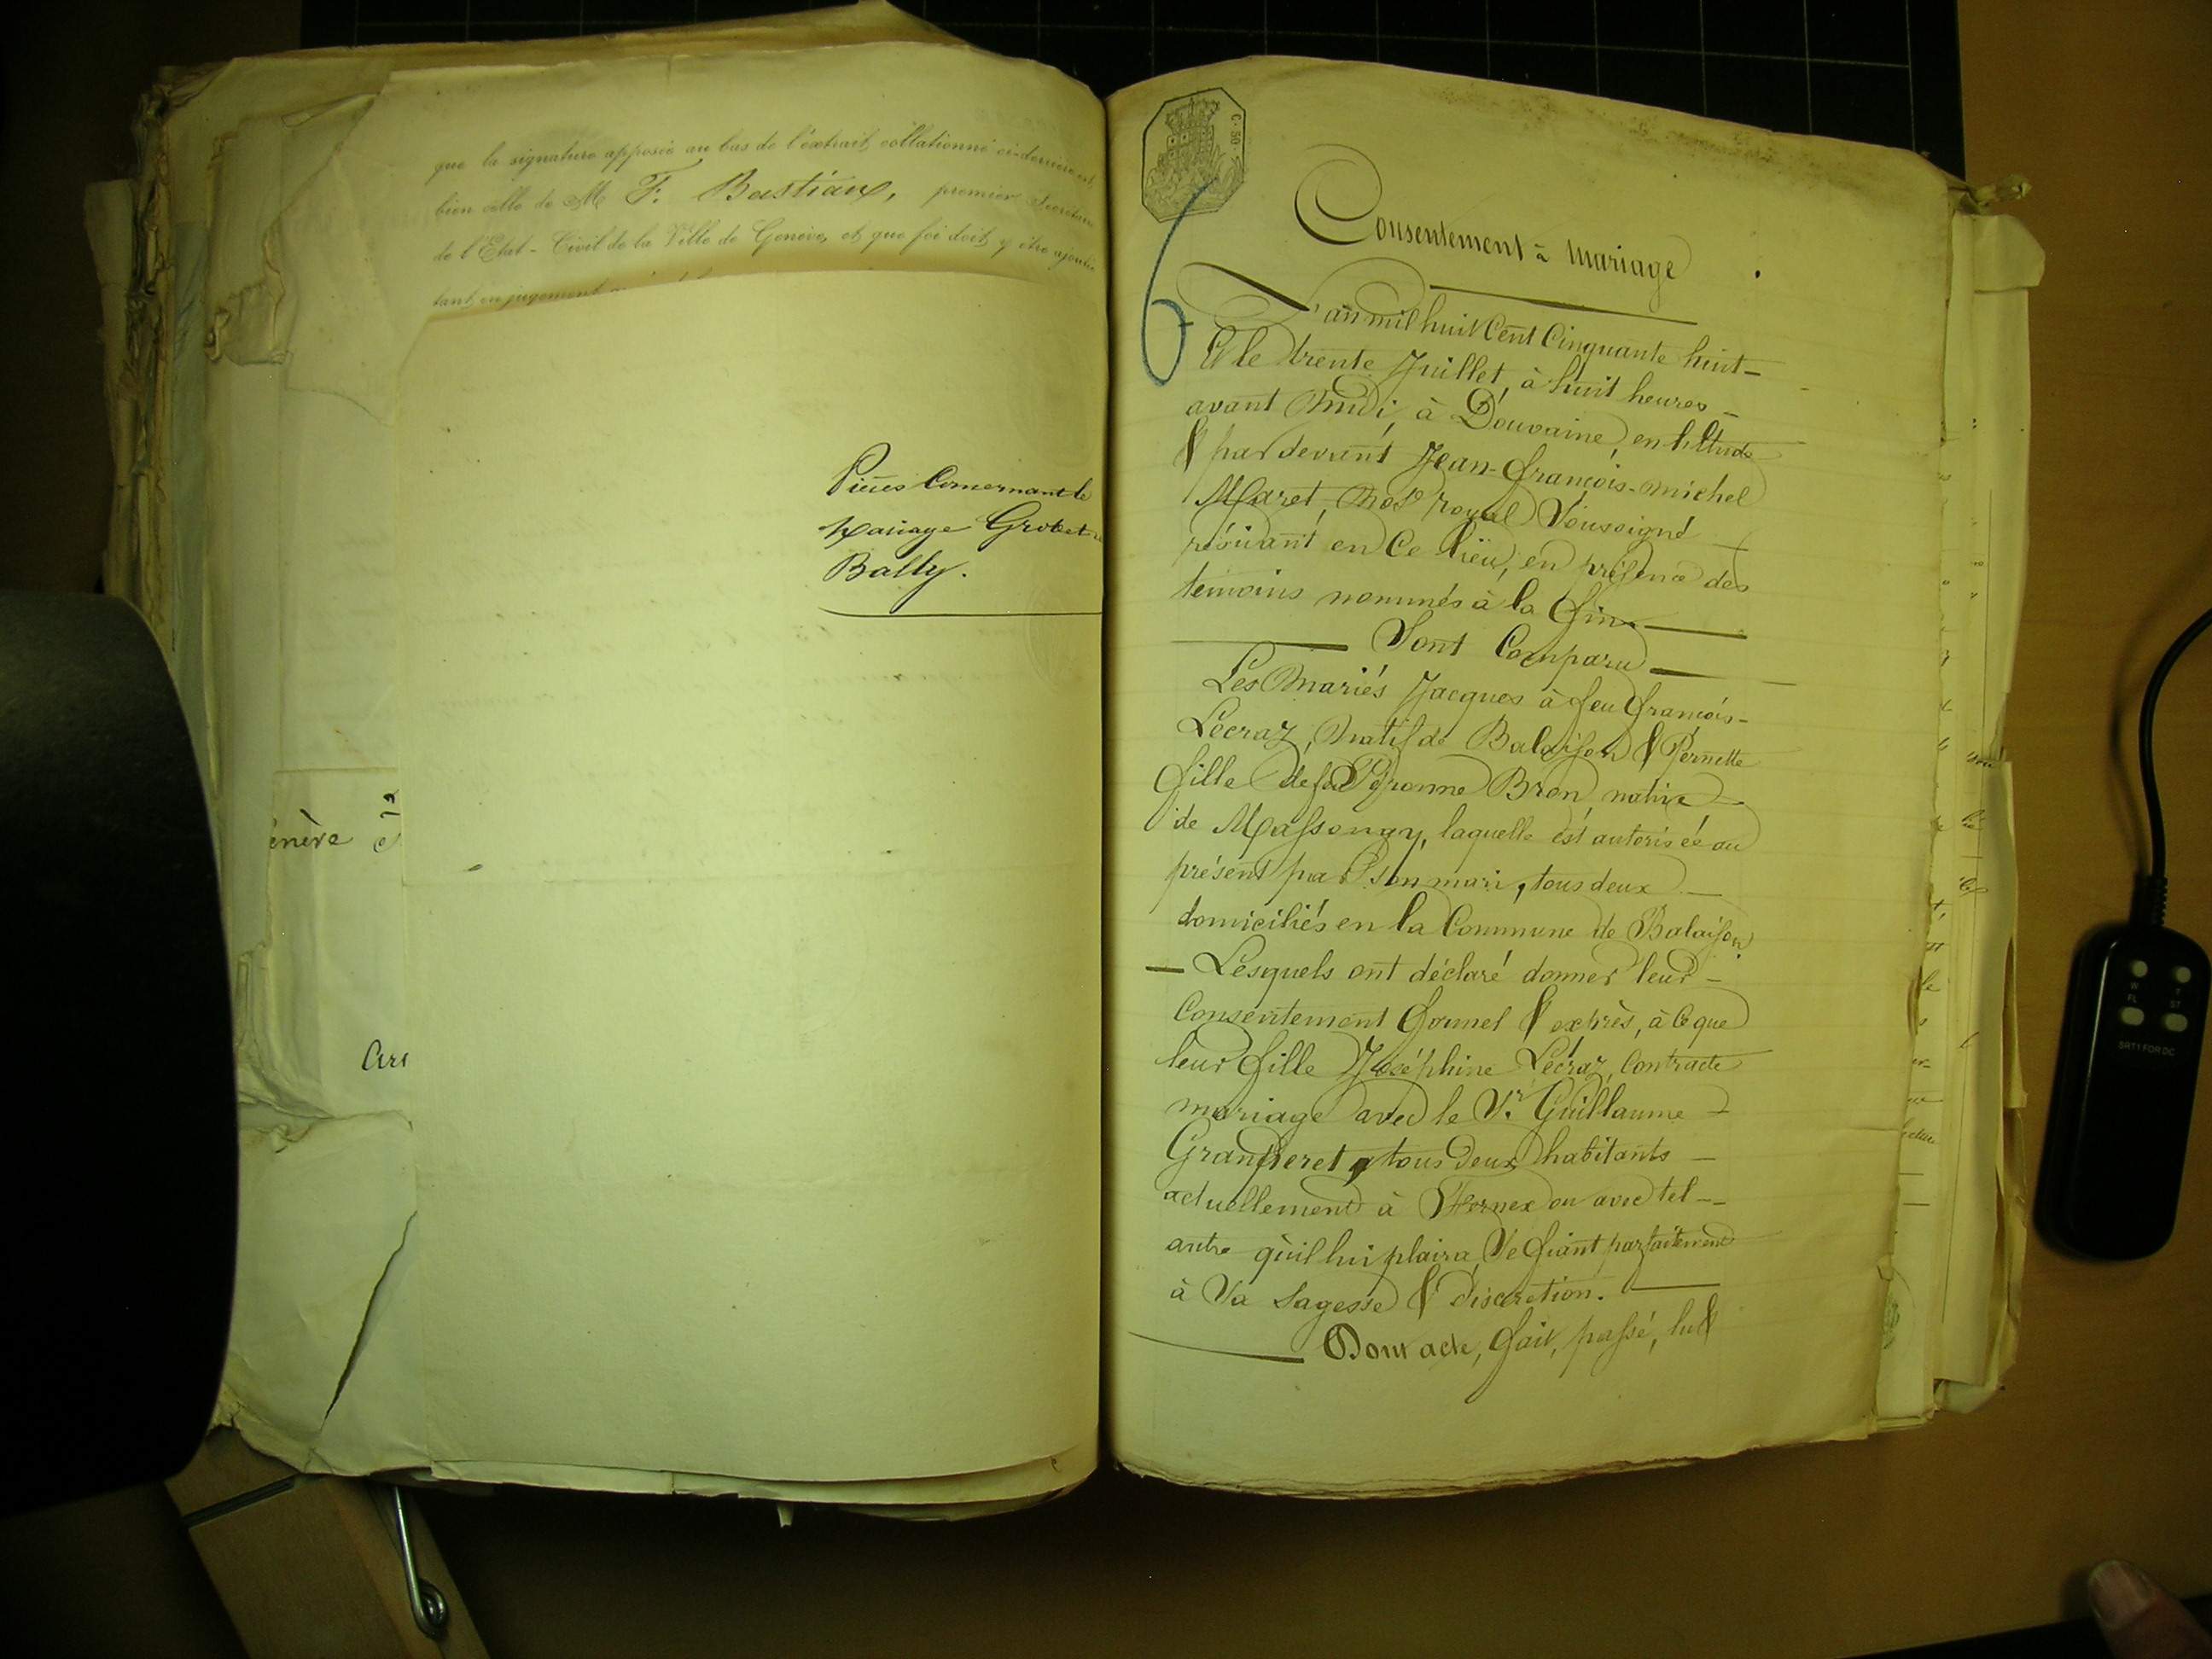 que la signature apposée au bas de l'extrait collationné ci-derrière est
bien celle de M F. Bastian, premier Secrétaire
de l'Etat-Civil de la Ville de Genève, et que foi doit y être ajoutée
tant en jugement
Pièces Concernant le
Mariage Grobet
Bally.
enère
C. 50.
6
Consentement à mariage
L'an mil huit Cent Cinquante huit
Et le trente Juillet, à huit heures
avant Midi, à Douvaine, en l'Etude
& par devant Jean-François-Michel
Maret, Not.e royal Soussigné
résidant en Ce lieu, en présence des
témoins nommés à la fin
Sont Comparu
Les Mariés Jacques à feu François
Lécraz, Natif de Balaison & Pernette
fille de feu Pyronne Bron, native
de Massongy, laquelle est autorisée au
présent par son mari, tous deux
domiciliés en la Commune de Balaison.
Lesquels ont déclaré donner leur
Consentement formel & exprès, à Ce que
leur fille Joséphine Lécraz, Contracte
mariage avec le S.r Guillaume
Grandperet, tous deux habitants
actuellement à Fernex ou avec tel
autre qu'il lui plaira, Se fiant parfaitement
à Sa Sagesse & discrétion.
Dont acte, fait, passé, lu &